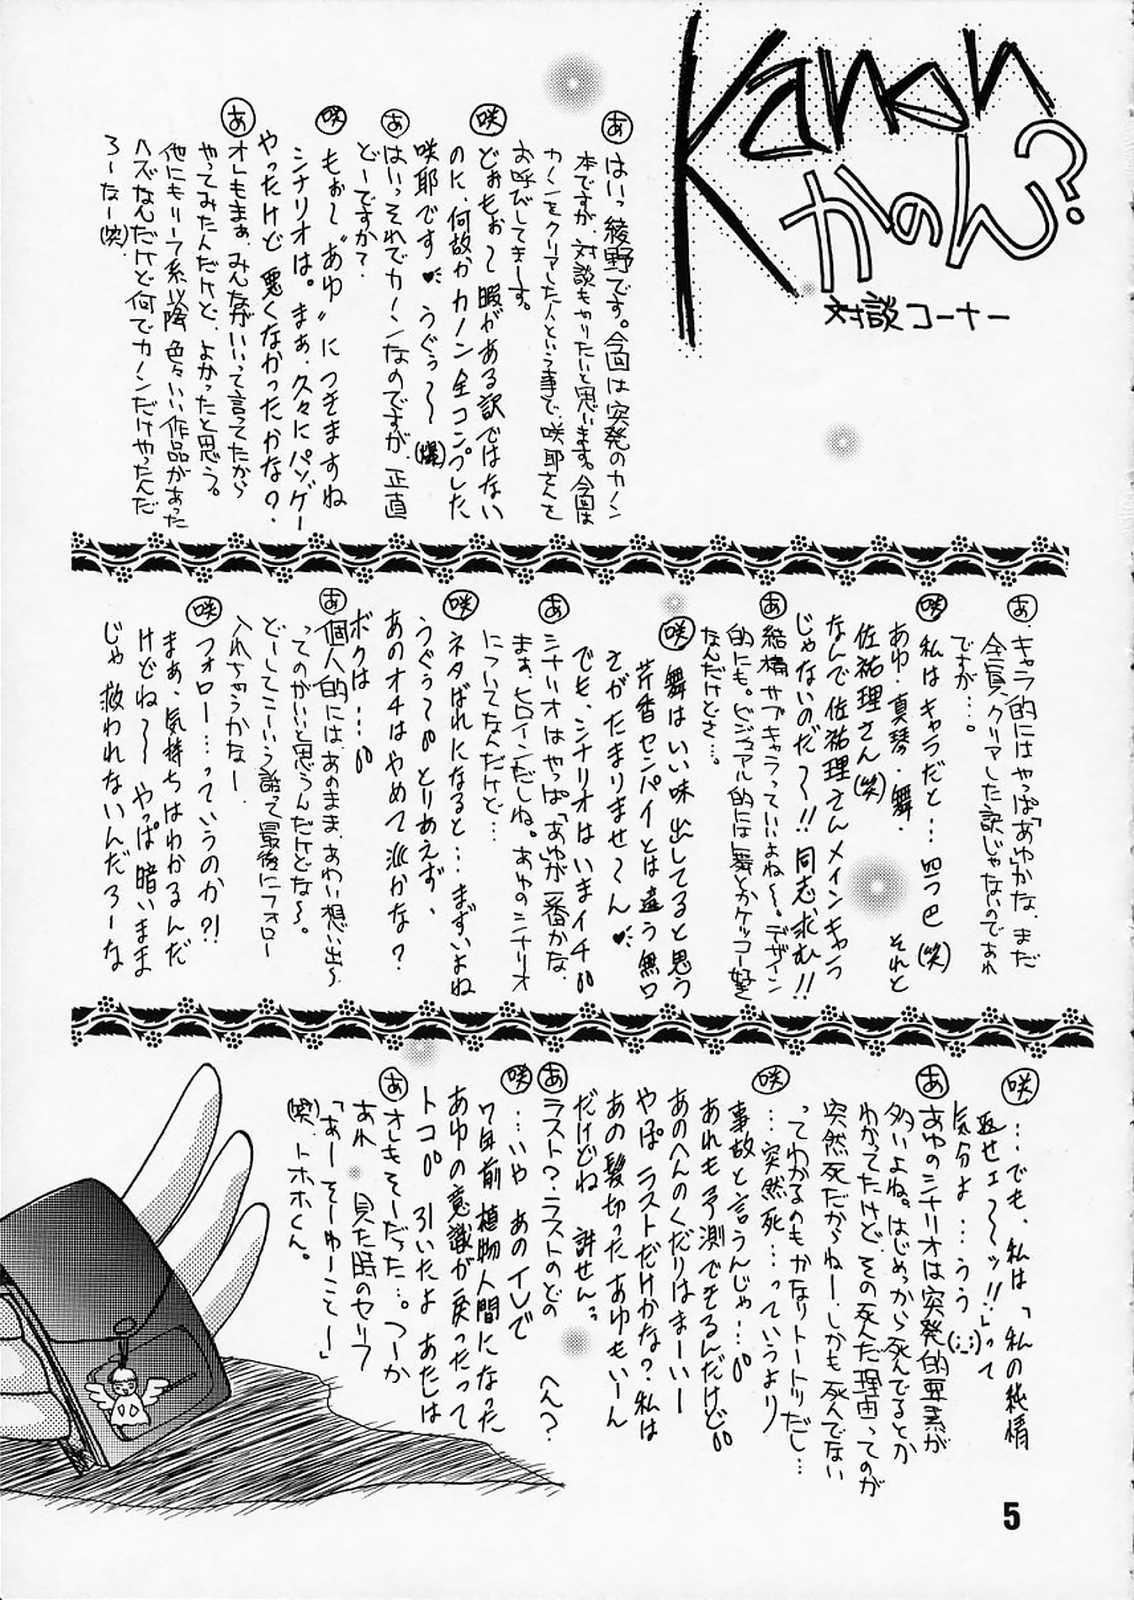 Kanon
かのん?
対談コーナー
あ はいっ綾野です。今回は突発のカノン
本ですが、対談もやりたいと思います。今回は
カノンをクリアした人という事で、咲耶さんを
お呼びしてまーす。
咲 どぉもぉ〜暇がある訳ではない
のに、何故かカノン全コンプした
咲耶です♥うぐぅ〜〜(爆)
あ はいっそれでカノンなのですが、正直
どーですか?
咲 もぉ〜"あゆ"につきますね
シナリオは。まぁ、久々にパソゲー
やったけど悪くなかったかな?
あ オレもまぁ、みんながいいって言ってたから
やってみたんだけど、よかったと思う。
他にもリーフ系以降色々いい作品があった
ハズなんだけど何でカノンだけやったんだ
ろーなー(笑)
あ キャラ的にはやっぱ「あゆ」かな、まだ
全員、クリアした訳じゃないのであれ
ですが…。
咲 私はキャラだと…四つ巴(笑)
あゆ・真琴・舞・それと
佐祐理さん(笑)
なんで佐祐理さんメインキャラ
じゃないのだ〜!!同志求む!!
あ 結構サブキャラっていいよね〜。デザイン
的にも。ビジュアル的には舞とかケッコー好き
なんだけどさ…。
咲 舞はいい味出してると思う
芹香センパイとは違う無口
さがたまりませ〜ん♥
でも、シナリオはいまイチ
あ シナリオはやっぱ「あゆ」が一番かな、
まぁ、ヒロインだしね。あゆのシナリオ
についてなんだけど…
咲 ネタばれになると…まずいよね
うぐぅ〜とりあえず、
あのオチはやめて欲しかな?
ボクは…
あ 個人的には、あのまま、あわい想い出〜
ってのがいいと思うんだけどな〜。
どーしてこーいう話って最後にフォロー
入れちゃうかなー
咲 フォロー…っていうのか?!
まぁ、気持ちはわかるんだ
けどね〜〜やっぱ暗いまま
じゃ救われないんだろーな
咲 …でも、私は「私の純情
返せエ〜〜ッ!!」って
気分よ…うぅ(;_;)
あ あゆのシナリオは突発的要素が
多いよね。はじめっから死んでるとか
わかってたけど、その死んだ理由ってのが
突然死だからねー、しかも死んでない
ってわかるのもかなりトートツだし…
咲 …突然死…っていうより
事故と言うんじゃ…
あれも予測できるんだけど
あのへんのくだりはまーいー
やぱラストだけかな?私は
あの髪切ったあゆもいーん
だけどね 許せんっ
あ ラスト?ラストのどの へん?
咲 …いや あのイレで
7年前植物人間になった
あゆの意識が戻ったって
トコ 引いたよあたしは
あ オレもそーだった…。つーか
あれ 見た時のセリフ
「あーそーゆーことー」
(笑)トホホくん。
5